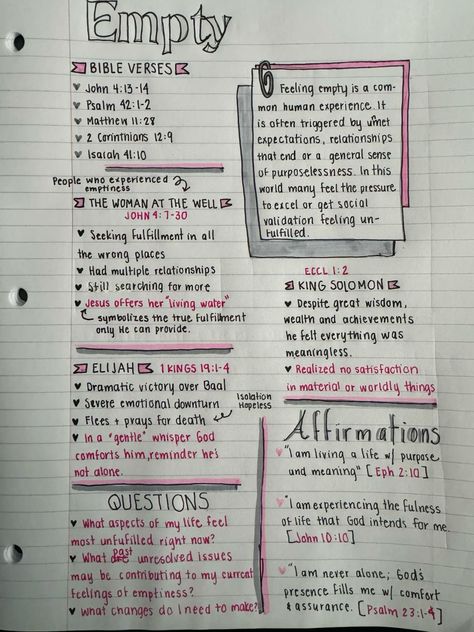 Empty
BIBLE VERSES
♥ John 4:13-14
♥ Psalm 42:1-2
♥ Matthew 11:28
♥ 2 Corinthians 12:9
♥ Isaiah 41:10
Feeling empty is a com-
mon human experience. It
is often triggered by unmet
expectations, relationships
that end or a general sense
of purposelessness. In this
world many feel the pressure
to excel or get social
validation feeling un-
fulfilled.
People who experienced
emptiness
THE WOMAN AT THE WELL
JOHN 4:7-30
♥ Seeking fulfillment in all
the wrong places
♥ Had multiple relationships
♥ Still searching for more
♥ Jesus offers her "living water"
symbolizes the true fulfillment
only He can provide.
ECCL 1:2
KING SOLOMON
♥ Despite great wisdom,
wealth and achievements
he felt everything was
meaningless.
♥ Realized no satisfaction
in material or worldly things
ELIJAH 1 KINGS 19:1-4
♥ Dramatic victory over Baal
♥ Severe emotional downturn
♥ Flees + prays for death
Isolation
Hopeless
♥ In a "gentle" whisper God
comforts him, reminder he's
not alone.
QUESTIONS
♥ What aspects of my life feel
most unfufilled right now?
♥ What past unresolved issues
may be contributing to my current
feelings of emptiness?
♥ What changes do I need to make?
Affirmations
♥ "I am living a life w/ purpose
and meaning" [Eph 2:10]
♥ "I am experiencing the fulness
of life that God intends for me.
[John 10:10]
♥ "I am never alone; God's
presence fills me w/ comfort
& assurance. [Psalm 23:1-4]